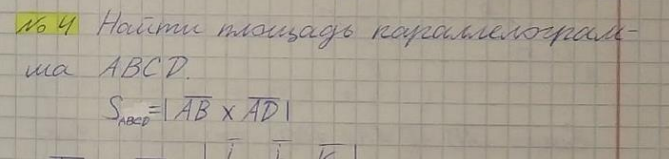 № 4 Найти площадь параллелограм-
ма ABCD.
S_ABCD = | AB × AD |